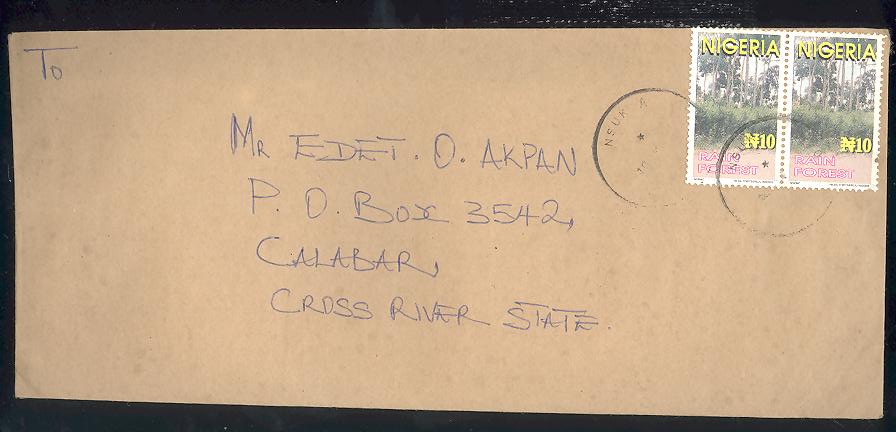 To
Mr EDET. O. AKPAN
P. O. Box 3542,
CALABAR,
CROSS RIVER STATE.
NIGERIA
₦10
RAIN
FOREST
NIGERIA
₦10
RAIN
FOREST